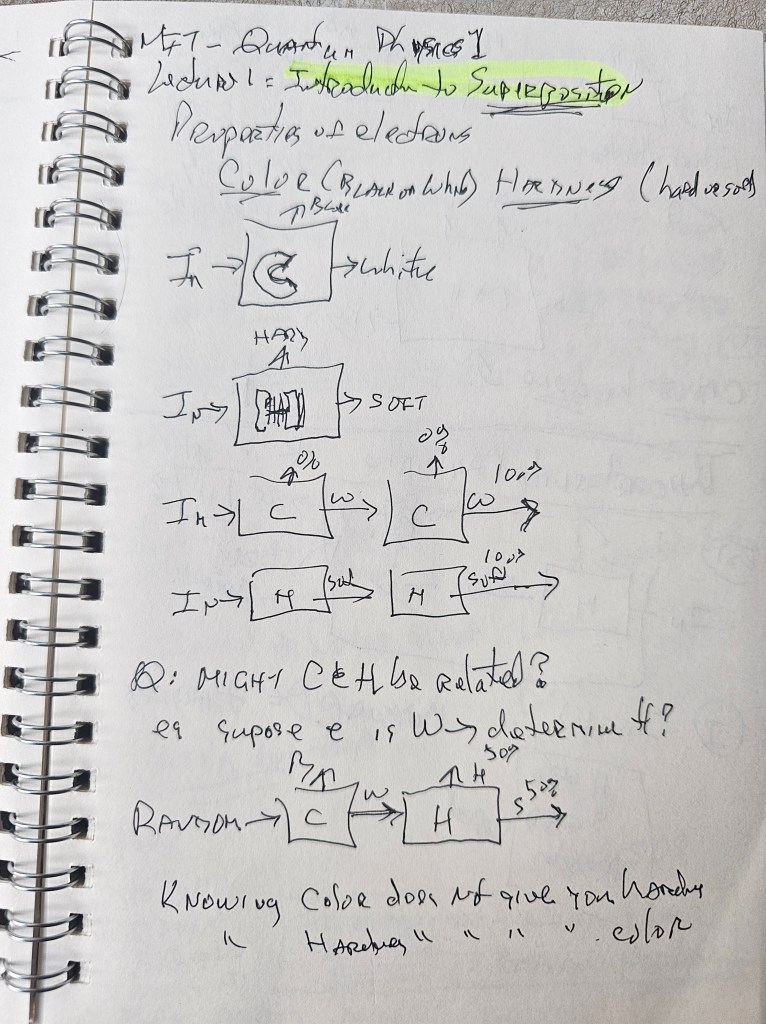 MIT - Quantum Physics 1
Lecture 1 = Introduction to SUPERPOSITION
Properties of electrons
Color (Black or White) HARDNESS (hard or soft)
Black
In → C → white
HARD
In → H → SOFT
0% 0%
In → C W → C W 100%
In → H soft → H soft 100%
Q: MIGHT C & H be related?
eg supose e is W → determine H?
B W H 50%
RANDOM → C → H S 50%
KNOWING COLOR does not give you hardness
" Hardness " " " " color